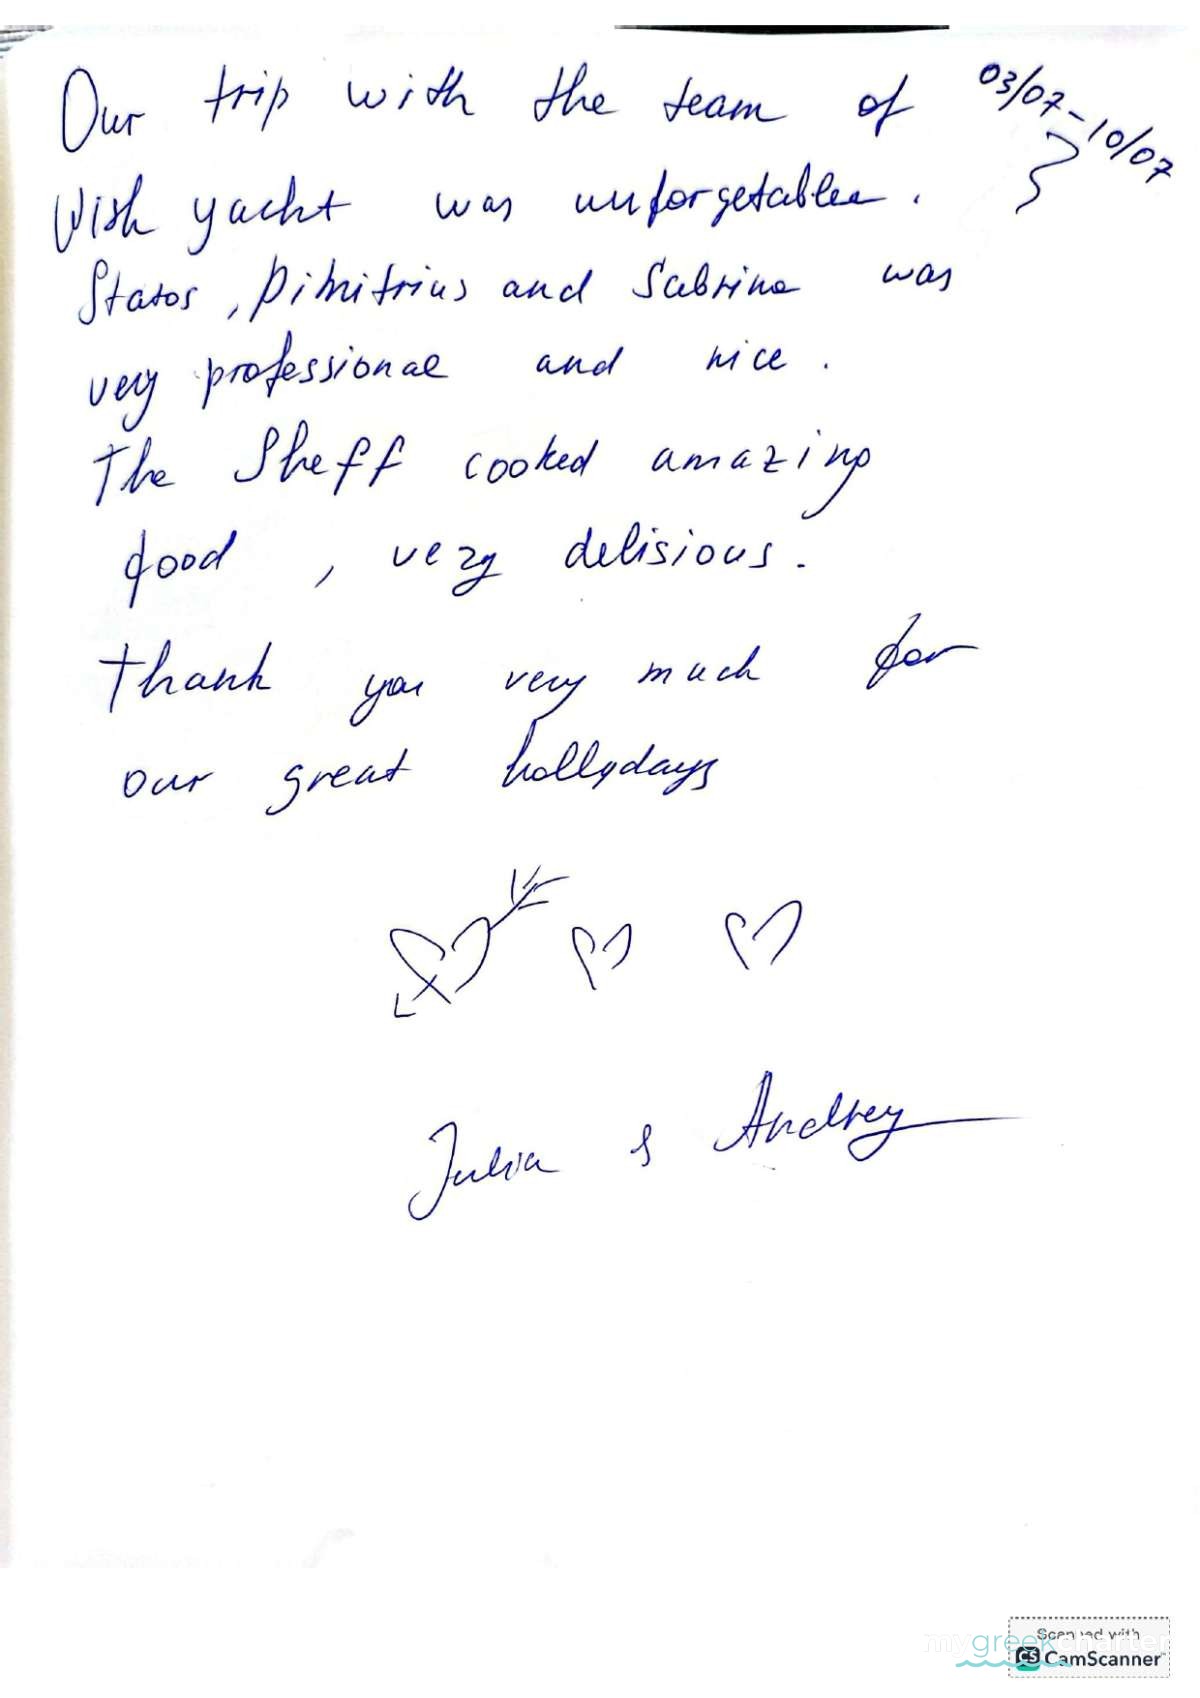 Our trip with the team of
03/07-10/07
Wish yacht was unforgetablee.
Statos, Dimitrius and Sabrina was
very professional and nice.
The Sheff cooked amazing
food, very delisious.
Thank you very much for
our great hollydays
Julia & Andrey
Scanned with
mygreekcharter
CS CamScanner